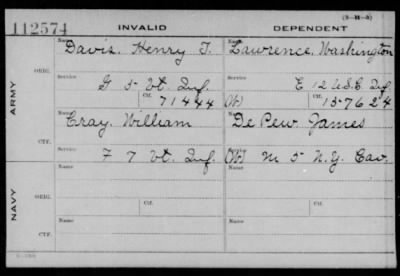 (3-M-5)
112574 INVALID DEPENDENT
Name Davis, Henry T. Name Lawrence, Washington
ARMY
ORIG.
Service G 5 Vt. Inf. Service E 12 U.S.C. Inf
Ctf. 71444 (W) Ctf. 157624
Name Cray, William Name De Pew, James
CTF.
F 7 Vt. Inf. (W) M 5 N.Y. Cav.
Name Name
NAVY
ORIG.
Ctf. Ctf.
Name Name
CTF.